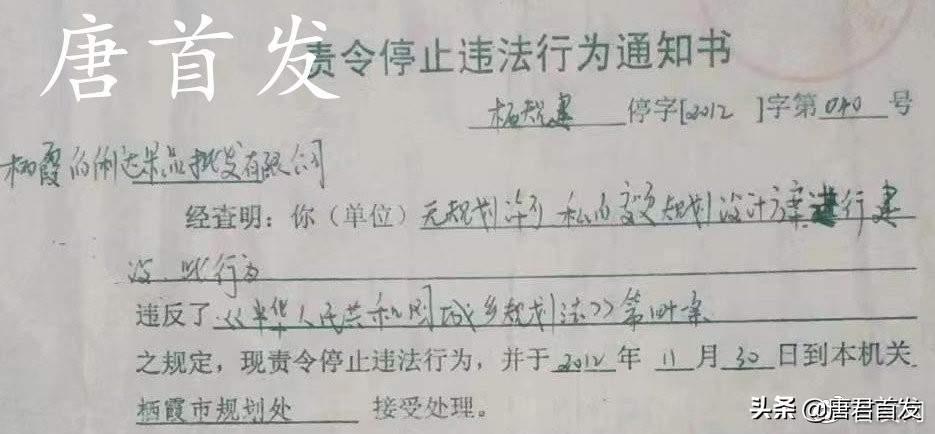 唐首发
责令停止违法行为通知书
栖规建 停字[2012 ]字第 040 号
栖霞 利达果品批发有限公司
经查明：你（单位）无规划许可 私自变更规划设计方案进行建
设 此行为
违反了《中华人民共和国城乡规划法》第 条
之规定，现责令停止违法行为，并于 2012 年 11 月 30 日到本机关
栖霞市规划处 接受处理。
头条 @唐君首发